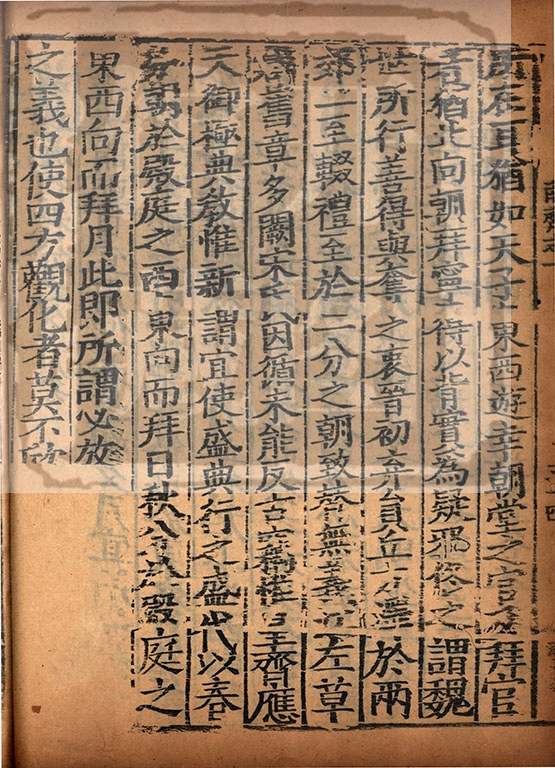 所在耳猶如天子東西遊幸朝堂之官及拜官
者猶北向朝拜寧得以背實為疑邪佟之謂魏
世所行善得與奪之衷晉初弃圓丘方澤於兩
郊二至輟禮至於二分之朝致替無義江左草
舊章多闕宋氏因循未能反古竊惟皇齊應
天御極典教惟新謂宜使盛典行之盛代以春
分朝於殿庭之西東向而拜日秋分於殿庭之
東西向而拜月此即所謂必放
之義也使四方觀化者莫不欣